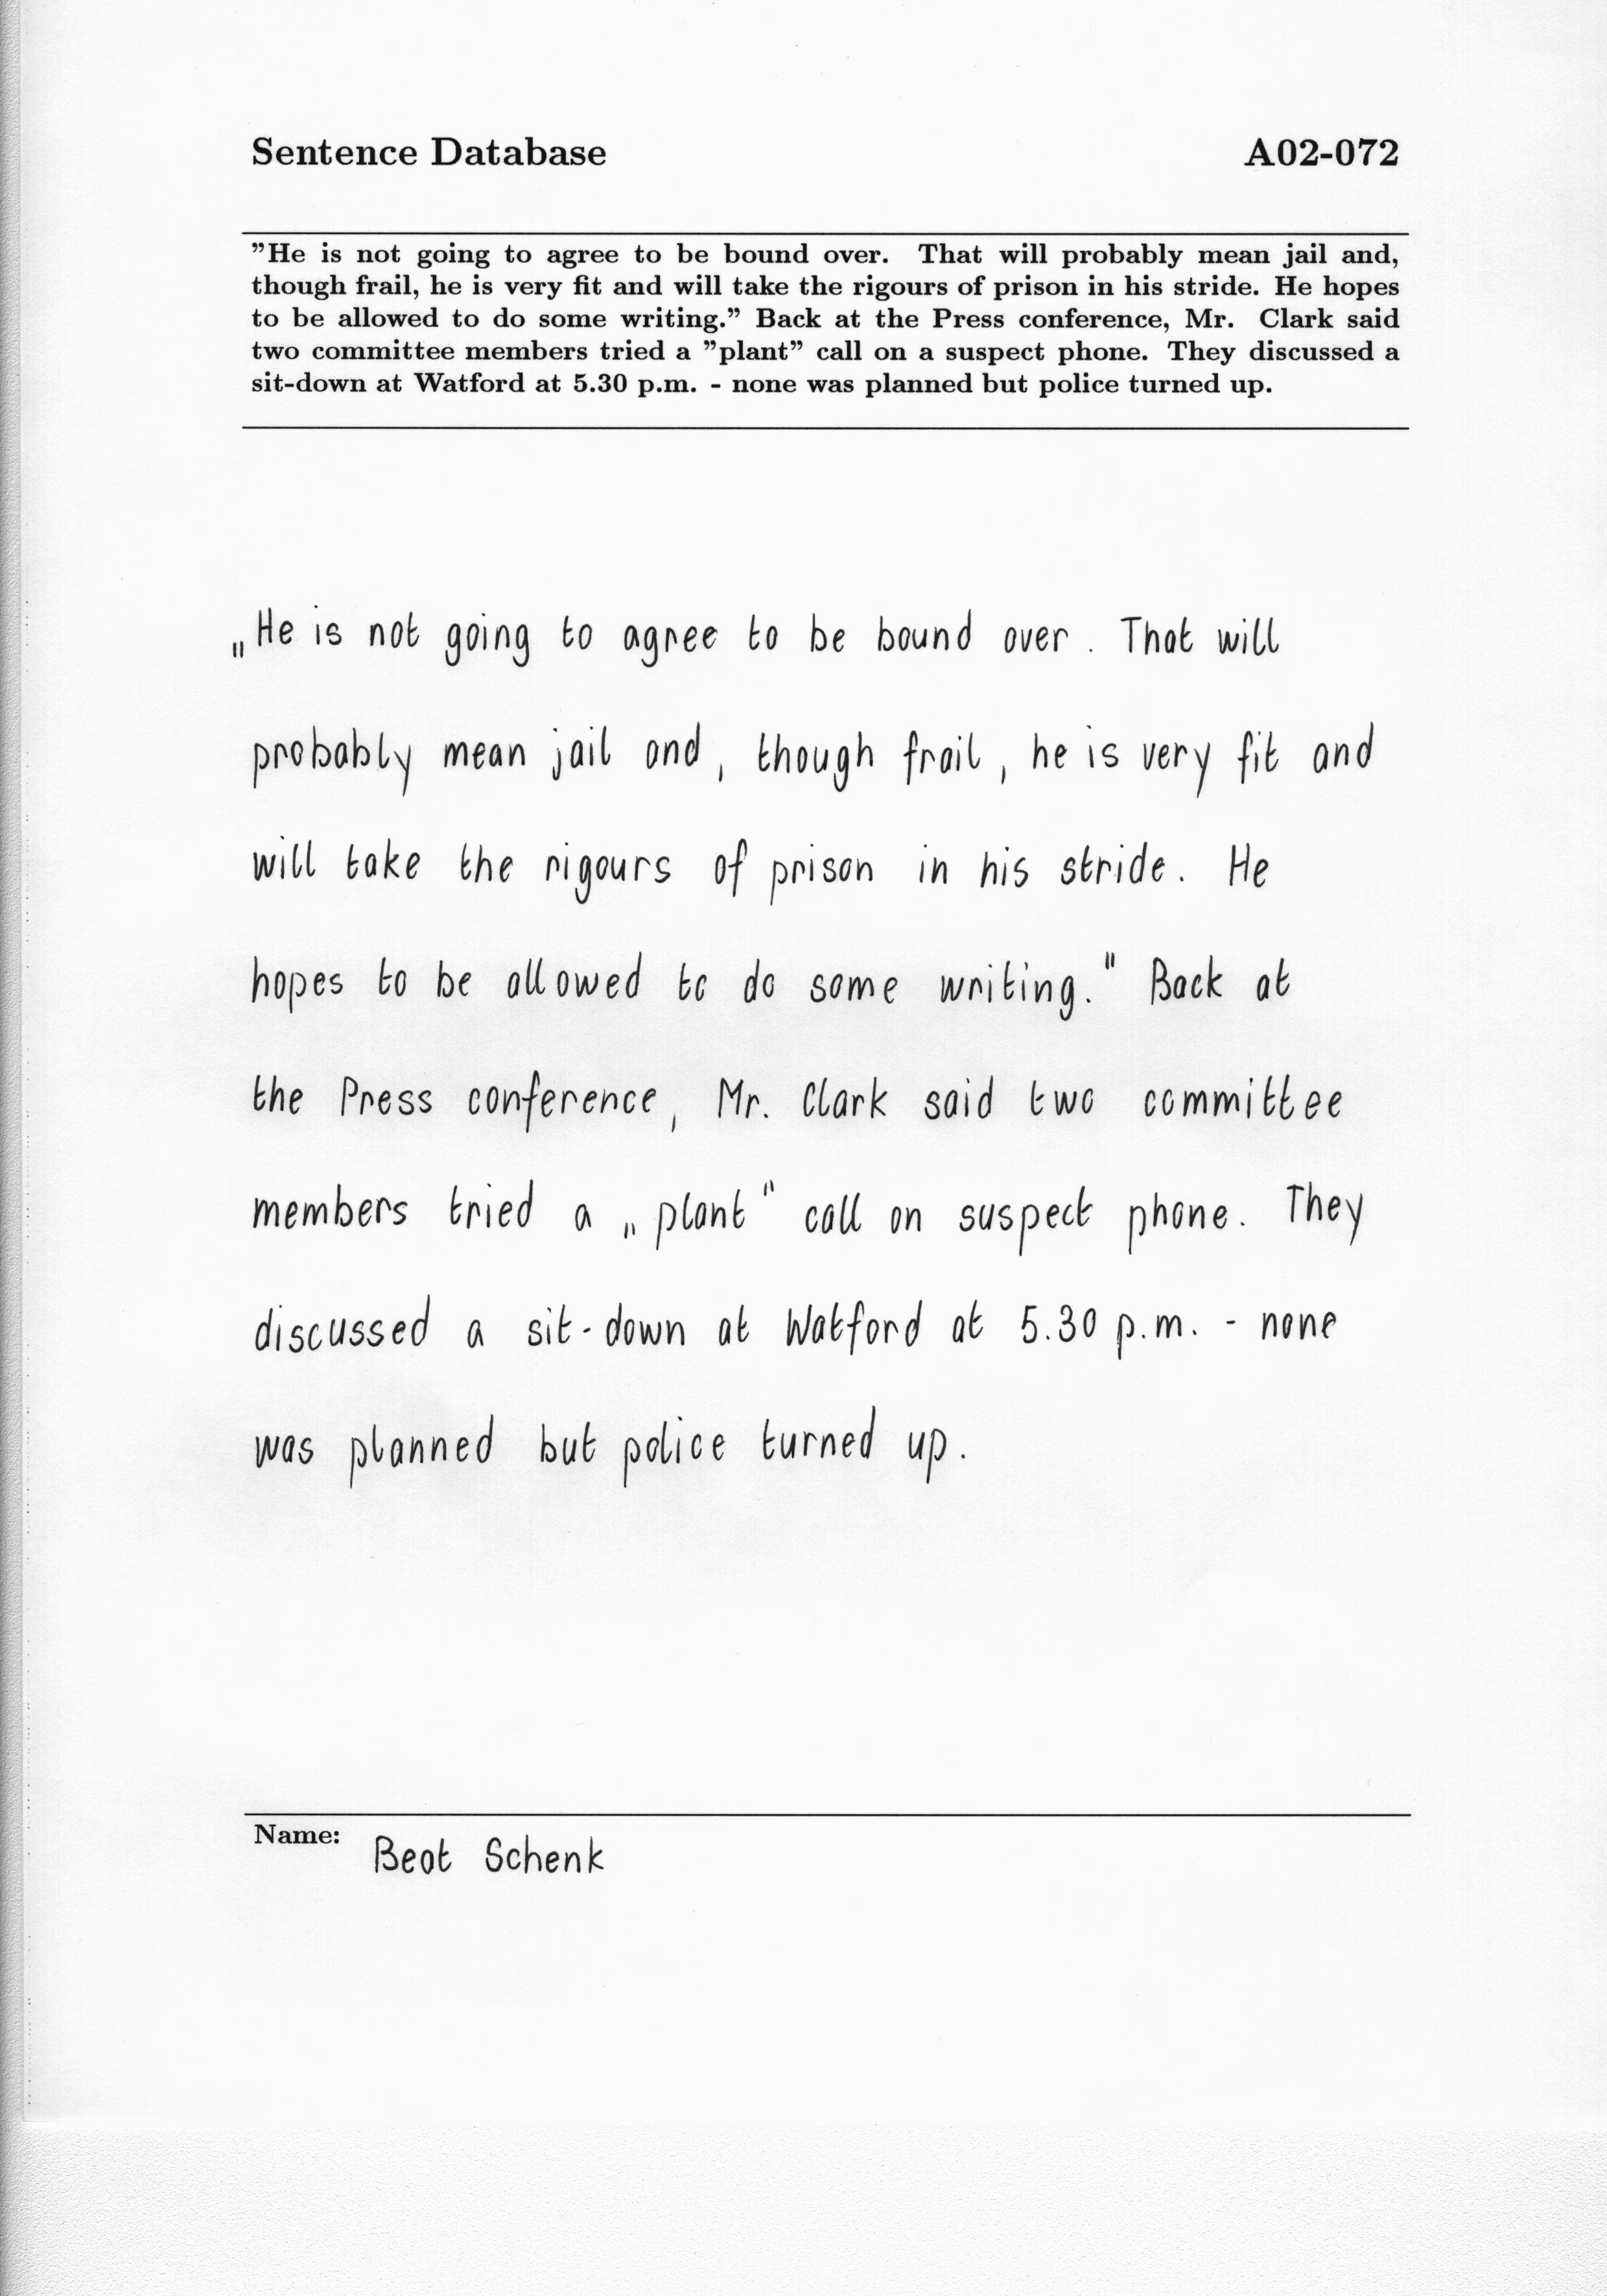 Sentence Database A02-072
”He is not going to agree to be bound over. That will probably mean jail and,
though frail, he is very fit and will take the rigours of prison in his stride. He hopes
to be allowed to do some writing.” Back at the Press conference, Mr. Clark said
two committee members tried a ”plant” call on a suspect phone. They discussed a
sit-down at Watford at 5.30 p.m. - none was planned but police turned up.
„He is not going to agree to be bound over. That will
probably mean jail and, though frail, he is very fit and
will take the rigours of prison in his stride. He
hopes to be allowed to do some writing." Back at
the Press conference, Mr. Clark said two committee
members tried a „plant" call on suspect phone. They
discussed a sit-down at Watford at 5.30 p.m. - none
was planned but police turned up.
Name: Beat Schenk